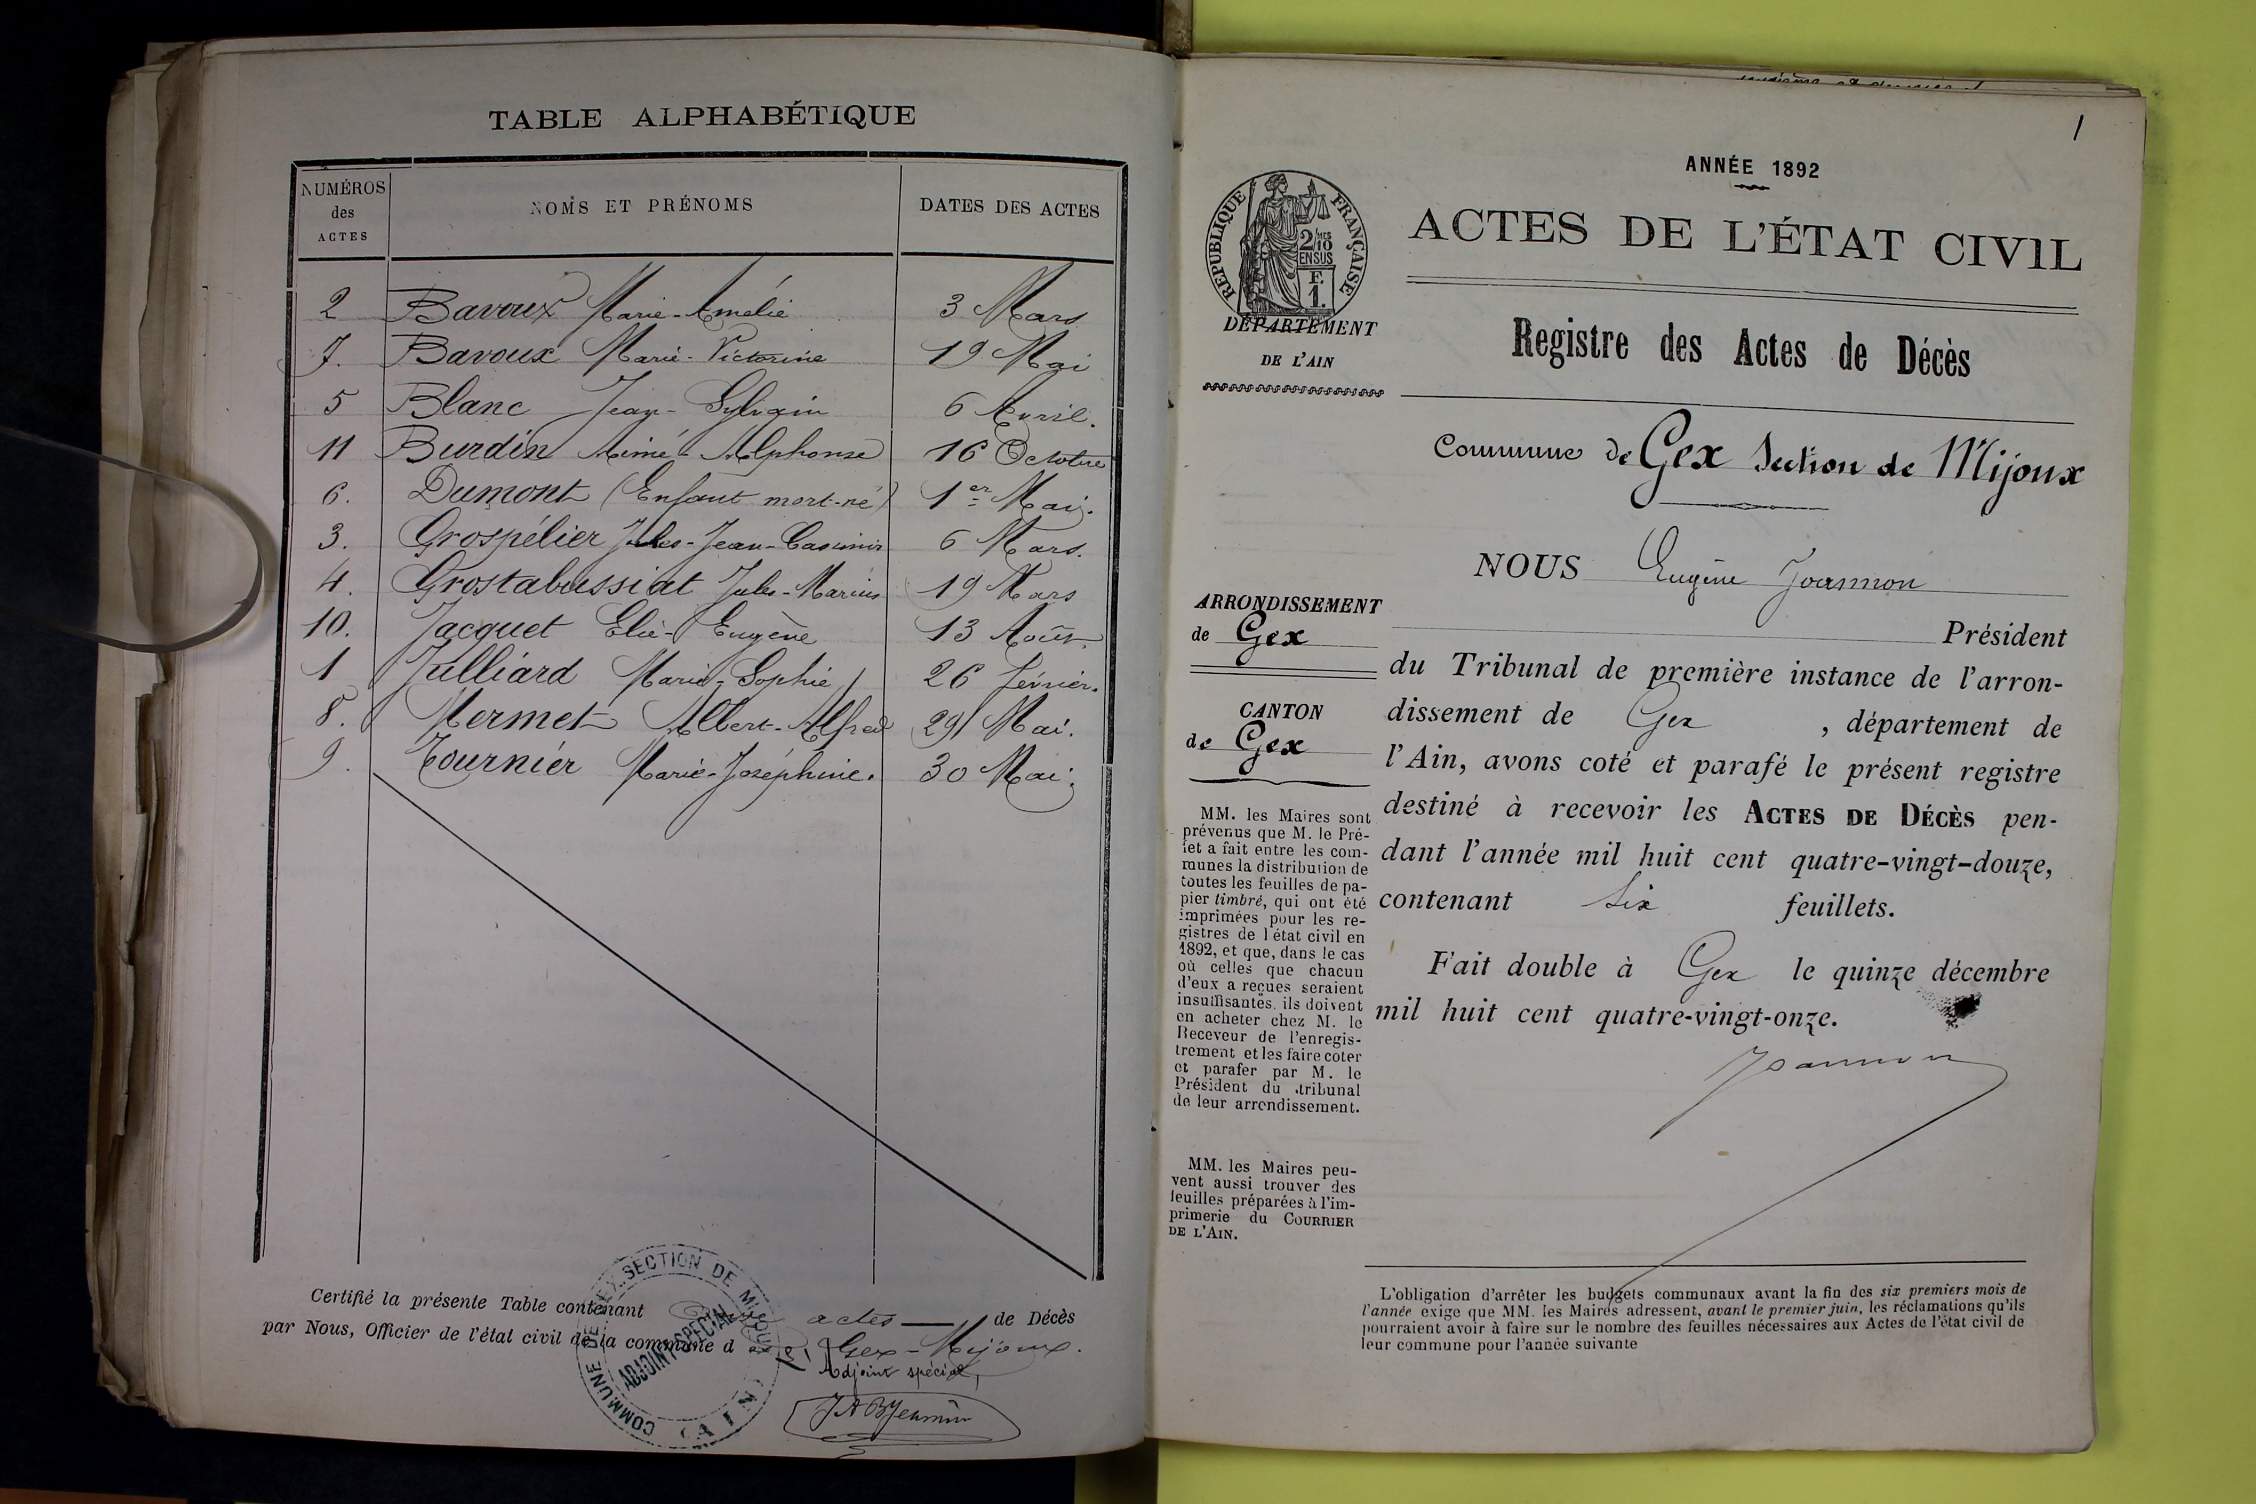 TABLE ALPHABÉTIQUE
NUMÉROS des ACTES NOMS ET PRÉNOMS DATES DES ACTES
2 Bavoux Marie-Amélie 3 Mars
7. Bavoux Marie-Victorine 19 Mai
5 Blanc Jean-Sylvain 6 Avril.
11 Burdin Aimé-Alphonse 16 Octobre
6. Dumont (Enfant mort-né) 1er Mai.
3. Grospélier Jules-Jean-Casimir 6 Mars.
4. Grostabussiat Jules-Marius 19 Mars
10. Jacquet Elie-Eugène 13 Août.
1 Julliard Marie-Sophie 26 Février.
8. Mermet Albert-Alfred 29 Mai.
9. Tournier Marie-Joséphine. 30 Mai.
Certifié la présente Table contenant actes de Décès
par Nous, Officier de l'état civil de la commune de Gex-Mijoux.
Adjoint spécial,
COMMUNE DE GEX. SECTION DE MIJOUX
ADJOINT SPÉCIAL
(AIN)
1
ANNÉE 1892
RÉPUBLIQUE FRANÇAISE
2/10 MES
EN SUS
F.
1.
ACTES DE L'ÉTAT CIVIL
DÉPARTEMENT
DE L'AIN
Registre des Actes de Décès
Commune de Gex Section de Mijoux
NOUS Eugène Joannon
ARRONDISSEMENT
de Gex
CANTON
de Gex
Président
du Tribunal de première instance de l'arron-
dissement de Gex, département de
l'Ain, avons coté et parafé le présent registre
destiné à recevoir les ACTES DE DÉCÈS pen-
dant l'année mil huit cent quatre-vingt-douze,
contenant six feuillets.
Fait double à Gex le quinze décembre
mil huit cent quatre-vingt-onze.
Joannon
MM. les Maires sont
prévenus que M. le Pré-
fet a fait entre les com-
munes la distribution de
toutes les feuilles de pa-
pier timbré, qui ont été
imprimées pour les re-
gistres de l'état civil en
1892, et que, dans le cas
où celles que chacun
d'eux a reçues seraient
insuffisantes, ils doivent
en acheter chez M. le
Receveur de l'enregis-
trement et les faire coter
et parafer par M. le
Président du tribunal
de leur arrondissement.
MM. les Maires peu-
vent aussi trouver des
feuilles préparées à l'im-
primerie du COURRIER
DE L'AIN.
L'obligation d'arrêter les budgets communaux avant la fin des six premiers mois de
l'année exige que MM. les Maires adressent, avant le premier juin, les réclamations qu'ils
pourraient avoir à faire sur le nombre des feuilles nécessaires aux Actes de l'état civil de
leur commune pour l'année suivante